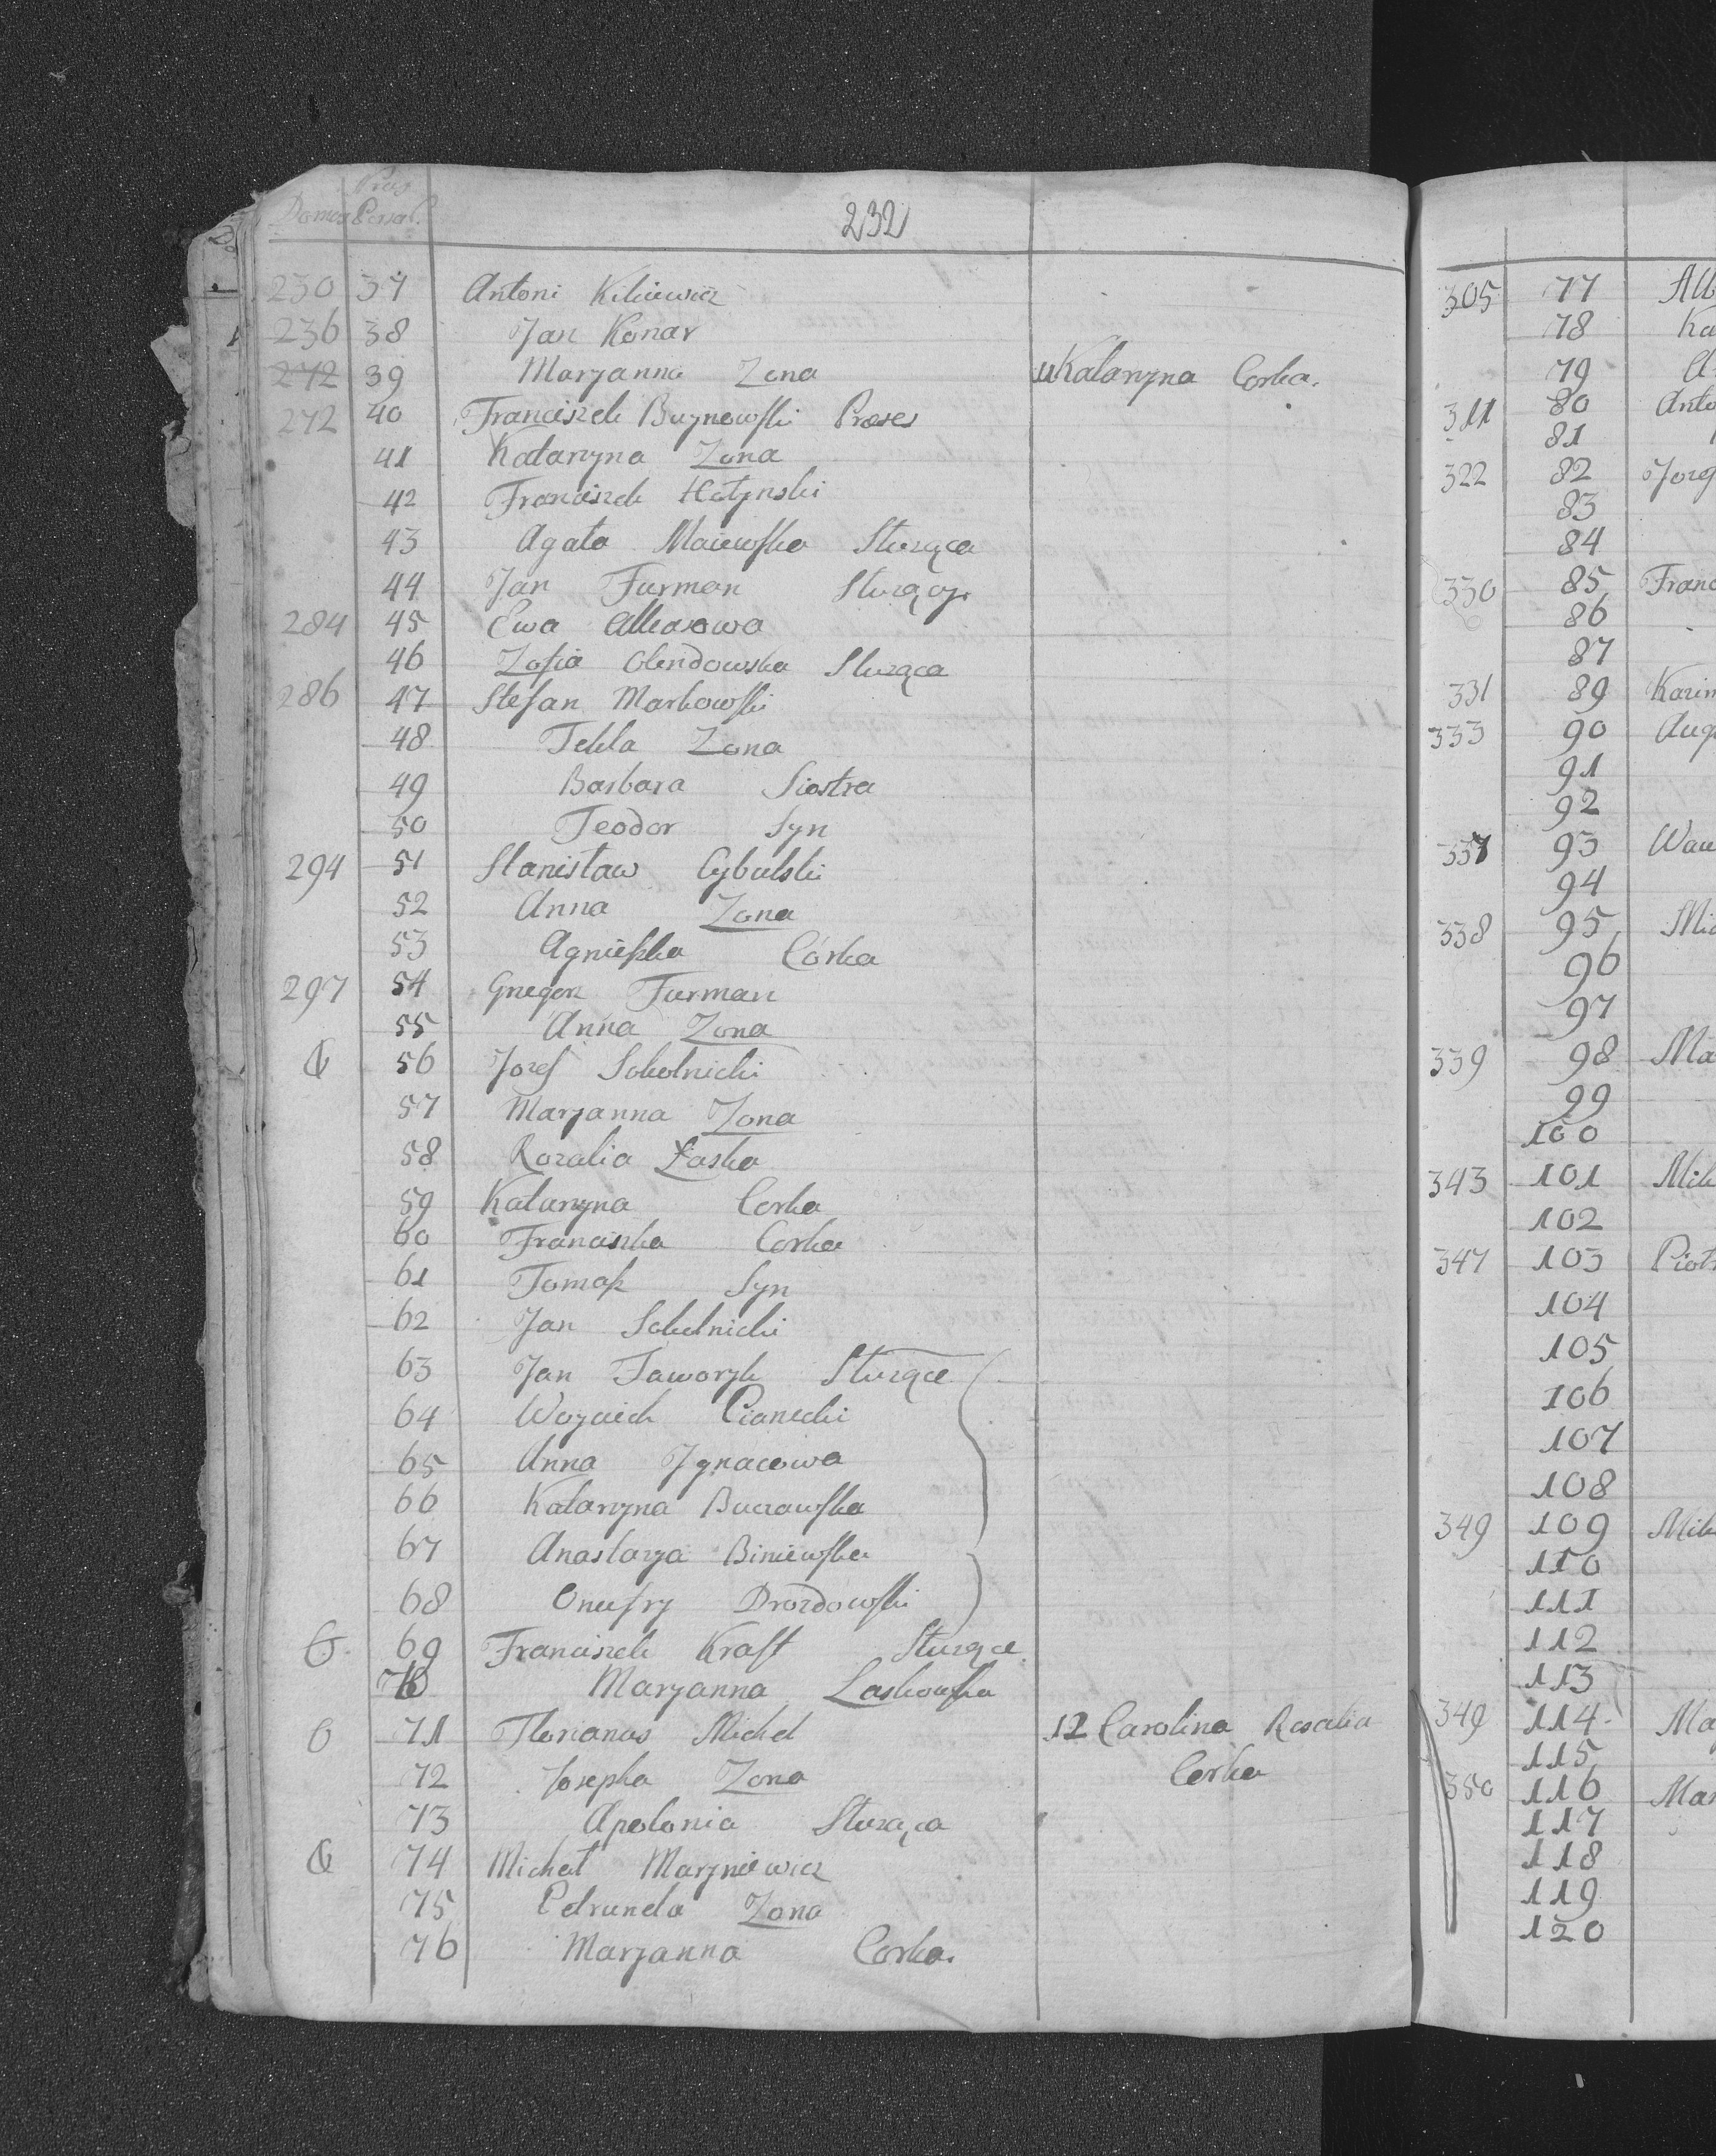 232
230 37 Antoni
236 38 Jan Konar
272 39 Maryanna Zona 11 Katarzyna Corka.
272 40 Franciszek Buynowski Prezes
41 Katarzyna Zona
42 Franciszek Hotynski
43 Agata Maiewska Sluząca
44 Jan Furman Sluzący
284 45 Ewa
46 Zofia Olendowska Sluząca
286 47 Stefan Markowski
48 Tekla Zona
49 Barbara Siostra
50 Teodor Syn
294 51 Stanisław Cybulski
52 Anna Zona
53 Agnieszka Córka
297 54 Grzegorz Furman
55 Anna Zona
56 Jozef Sokolnicki
57 Maryanna Zona
58 Rozalia Łaska
59 Katarzyna Corka
60 Franciszka Corka
61 Tomasz Syn
62 Jan Sokolnicki
63 Jan Jaworyk Słuzące
64 Woyciech Pianecki
65 Anna Ignacowa
66 Katarzyna
67 Anastazya Biniewska
68 Onufry Drozdowski
69 Franciszek Kraft Słuzące
70 Maryanna Laskowska
71 Florianus Michel 12 Carolina Rosalia
72 Josepha Zona Corka
73 Apolonia Słuząca
74 Michał Maryniewicz
75 Petrunela Zona
76 Maryanna Corka.
305 77
78
79
311 80
81
322 82
83
84
330 85
86
87
331 89
333 90
91
92
337 93
94
338 95
96
97
339 98
99
100
343 101
102
347 103
104
105
106
107
108
349 109
110
111
112
113
349 114
115
350 116
117
118
119
120